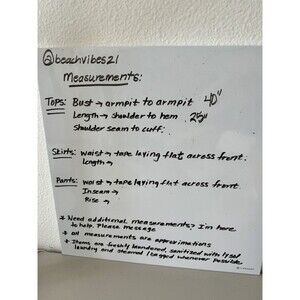 @beachvibes21
Measurements:
Tops: Bust → armpit to armpit 40"
Length → shoulder to hem 25"
Shoulder seam to cuff:
Skirts: waist → tape laying flat across front.
Length →
Pants: waist → tape laying flat across front.
Inseam →
Rise →
* Need additional measurements? I'm here
to help. Please message
* All measurements are approximations
* Items are freshly laundered, sanitized with lysol
laundry and steamed / bagged whenever possible